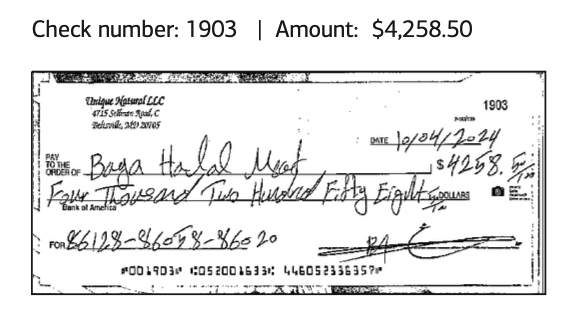 Check number: 1903 | Amount: $4,258.50
Unique Natural LLC
4715 Sellman Road, C
Beltsville, MD 20705
1903
DATE 10/04/2024
PAY TO THE ORDER OF Baga Halal Meat $ 4258. 50/100
Four Thousand Two Hundred Fifty Eight 50/100 DOLLARS
Bank of America
FOR 86128-86058-86020
⑈001903⑈ ⑆052001633⑆ 446052336357⑈